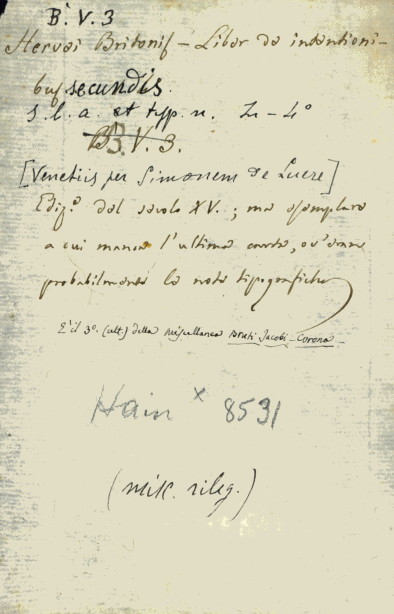 B. V. 3
Hervei Britonis – Liber de intentioni-
bus secundis.
s. l. a. et typ. n. In – 4°
B. V. 3.
[Venetiis per Simonem de Luere]
Ediz.e del secolo XV. ; ma esemplare
a cui manca l'ultima carta, ov'erano
probabilmente le note tipografiche
È il 3°. (ult.) della miscellanea Bruti Jacobi – Corona –
Hain x 8531
(misc. rileg.)